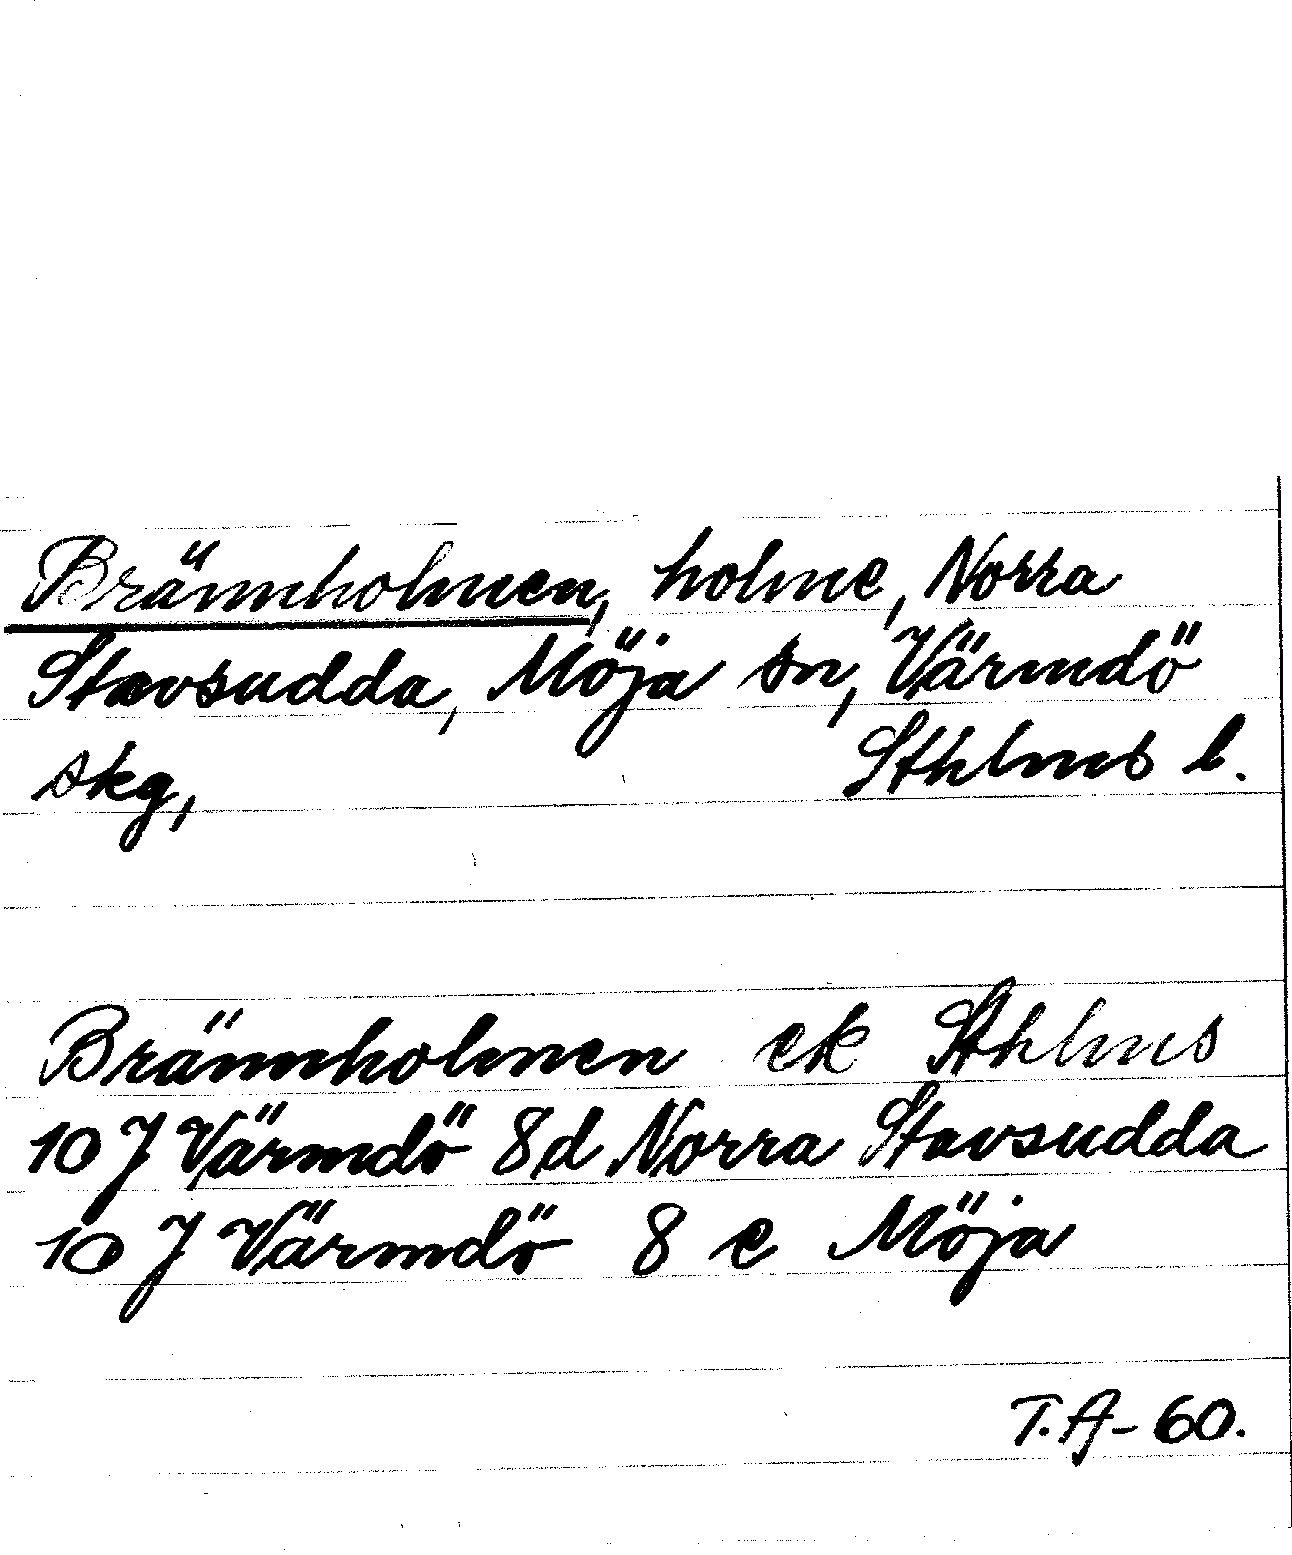 Brännholmen, holme, Norra
Stavsudda, Möja sn, Värmdö
skg, Sthlms l.
Brännholmen ek Sthlms
10 J Värmdö 8d Norra Stavsudda
10 J Värmdö 8 e Möja
T.A-60.